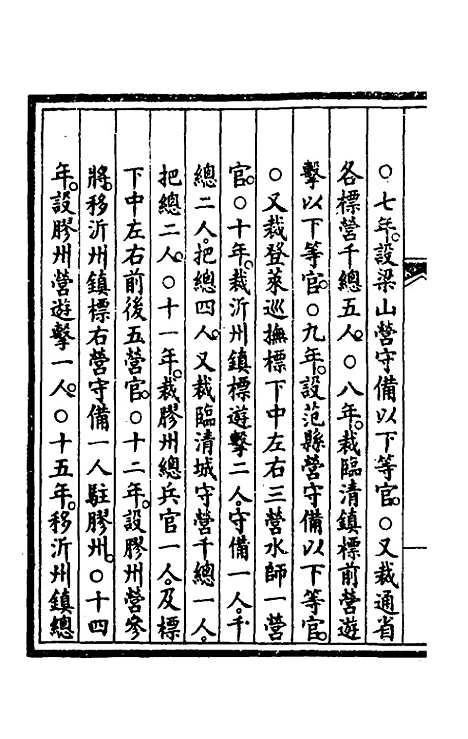 ○七年。設梁山營守備以下等官。○又裁通省
各標營千總五人。○八年。裁臨清鎮標前營遊
擊以下等官。○九年。設范縣營守備以下等官。
○又裁登萊巡撫標下中左右三營水師一營
官。○十年。裁沂州鎮標遊擊二人。守備一人。千
總二人。把總四人。又裁臨清城守營千總一人。
把總二人。○十一年。裁膠州總兵官一人。及標
下中左右前後五營官。○十二年。設膠州營參
將。移沂州鎮標右營守備一人駐膠州。○十四
年。設膠州營遊擊一人。○十五年。移沂州鎮總